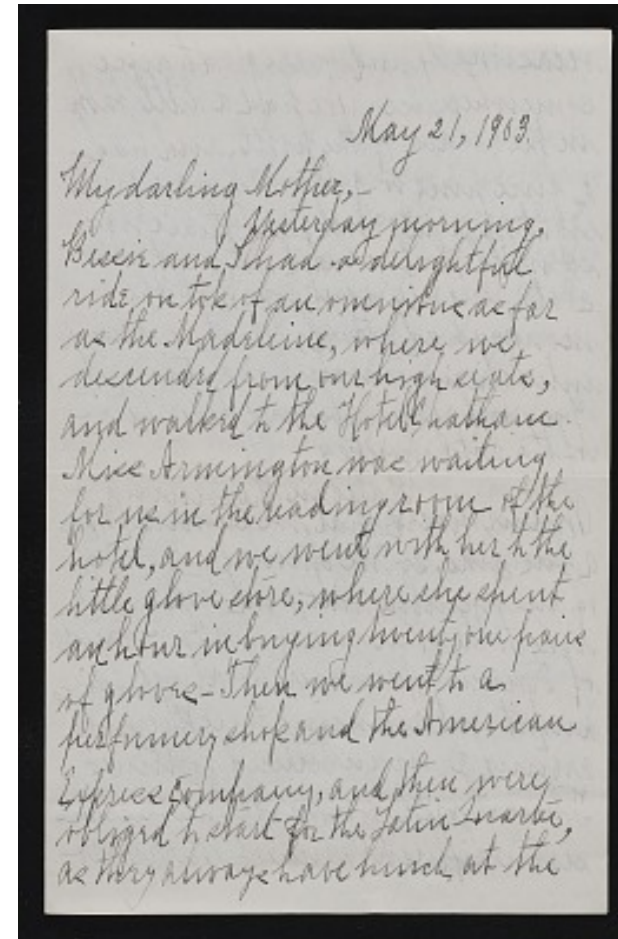 May 21, 1903.
My darling Mother,-
Yesterday morning,
Bessie and I had a delightful
ride on top of an omnibus as far
as the Madeleine, where we
descended from our high seats,
and walked to the Hotel Chatham.
Miss Armington was waiting
for us in the reading room of the
hotel, and we went with her to the
little glove store, where she spent
an hour in buying twenty one pairs
of gloves - Then we went to a
perfumery shop and the American
Express Company, and then were
obliged to start for the Latin Quarter,
as they always have lunch at the